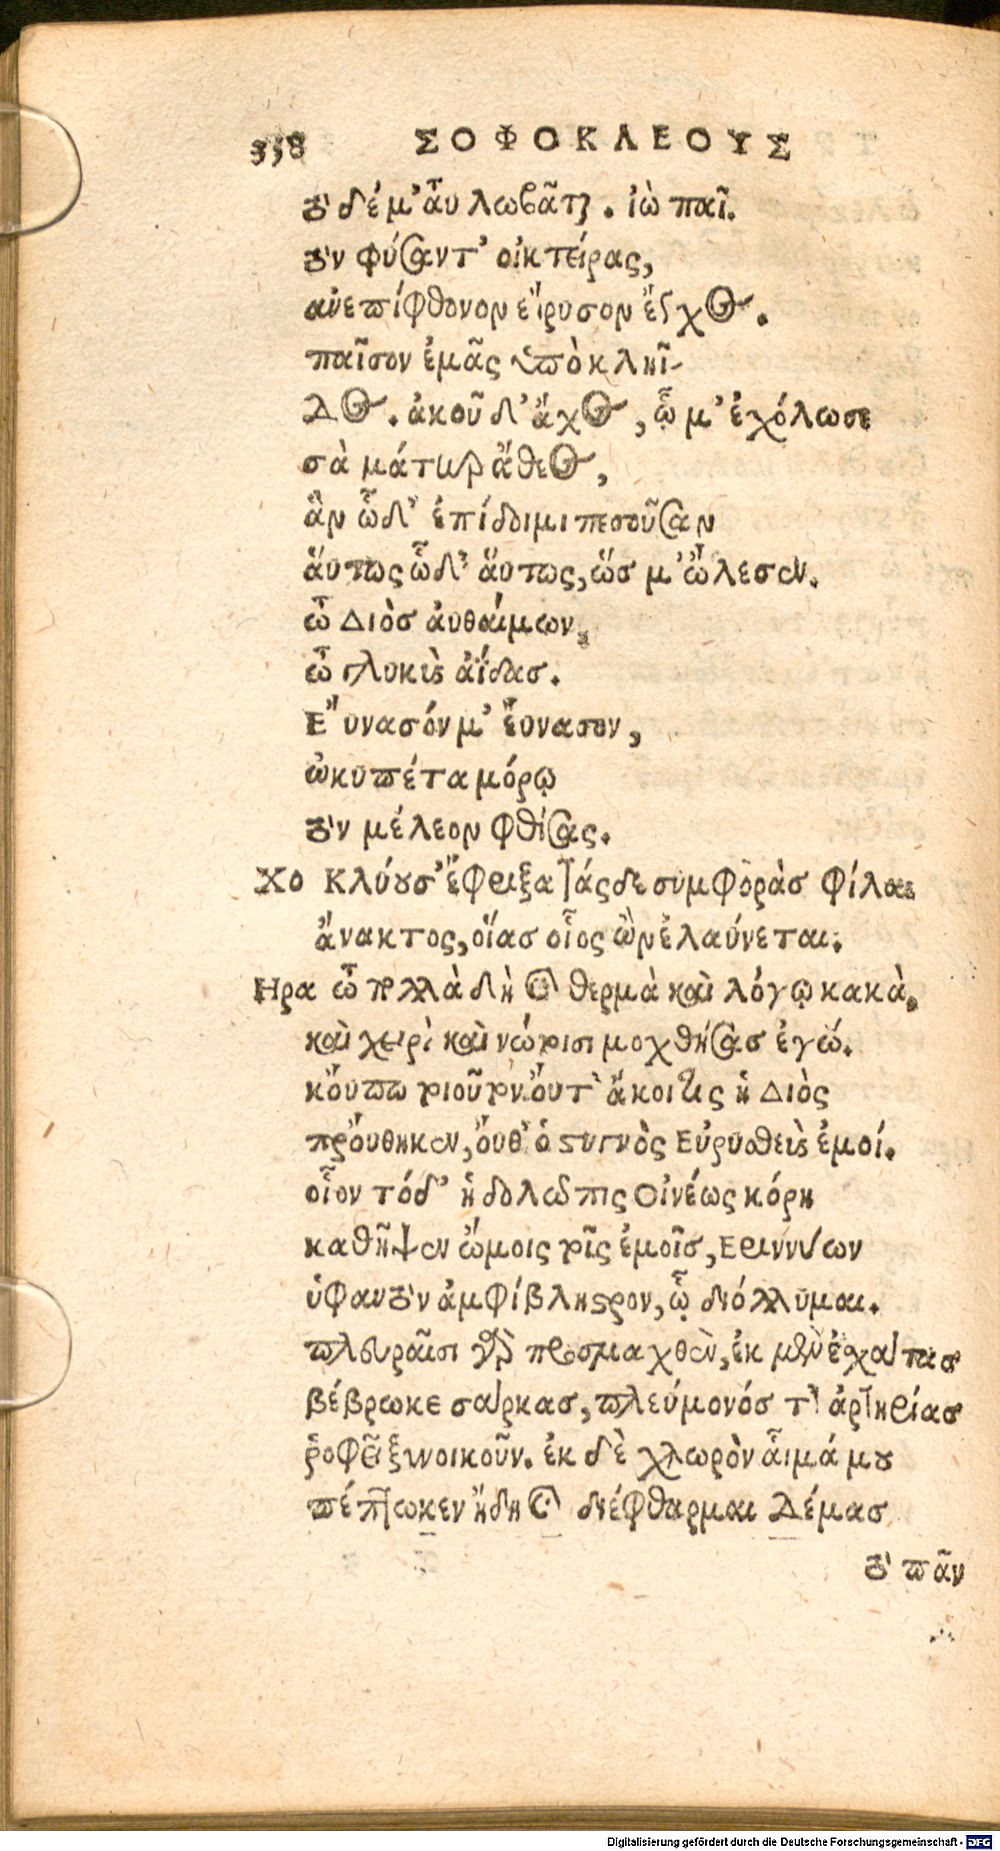 358 ΣΟΦΟΚΛΕΟΥΣ
τόδέ μ' αὖ λωβᾶται. ἰὼ παῖ.
τὸν φύσαντ' οἰκτείρας,
ἀνεπίφθονον εἴρυσον ἔγχος.
παῖσον ἐμᾶς ὑπὸ κληῖ-
δος. ἀκοῦ δ' ἄχος, ᾧ μ' ἐχόλωσε
σὰ μάτηρ ἄθεος,
ἃν ὧδ' ἐπίδοιμι πεσοῦσαν
αὕτως ὧδ' αὕτως, ὥσ μ' ὤλεσεν.
ὦ Διὸσ αὐθαίμων,
ὦ γλυκὺς ἀΐδασ.
Εὔνασόν μ' εὔνασον,
ὠκυπέτα μόρῳ
τὸν μέλεον φθίσας.
Χο Κλύουσ' ἔφριξα τάςδε συμφορὰσ φίλαι
ἄνακτος, οἵασ οἷος ὢν ἐλαύνεται.
Ηρα ὦ πολλὰ δὴ καὶ θερμὰ καὶ λόγῳ κακὰ,
καὶ χειρὶ καὶ νώτοισι μοχθήσασ ἐγώ.
κοὔπω τοιοῦτον οὔτ' ἄκοιτις ἡ Διὸς
προὔθηκεν, οὔθ' ὁ στυγνὸς Εὐρυσθεὺς ἐμοί.
οἷον τόδ' ἡ δολῶπις Οἰνέως κόρη
καθῆψεν ὤμοις τοῖς ἐμοῖσ, Ερινννύων
ὑφαυτὸν ἀμφίβληστρον, ᾧ διόλλυμαι.
πλευραῖσι γὰρ προσμαχθὲν, ἐκ μὲν ἐχάτασ
βέβρωκε σάρκασ, πλεύμονόσ τ' ἀρτηρίασ
ῥοφεῖ ξυνοικοῦν. ἐκ δὲ χλωρὸν αἷμά μου
πέπτωκεν ἤδη καὶ διέφθαρμαι δέμασ
τὸ πᾶν
Digitalisierung gefördert durch die Deutsche Forschungsgemeinschaft - DFG